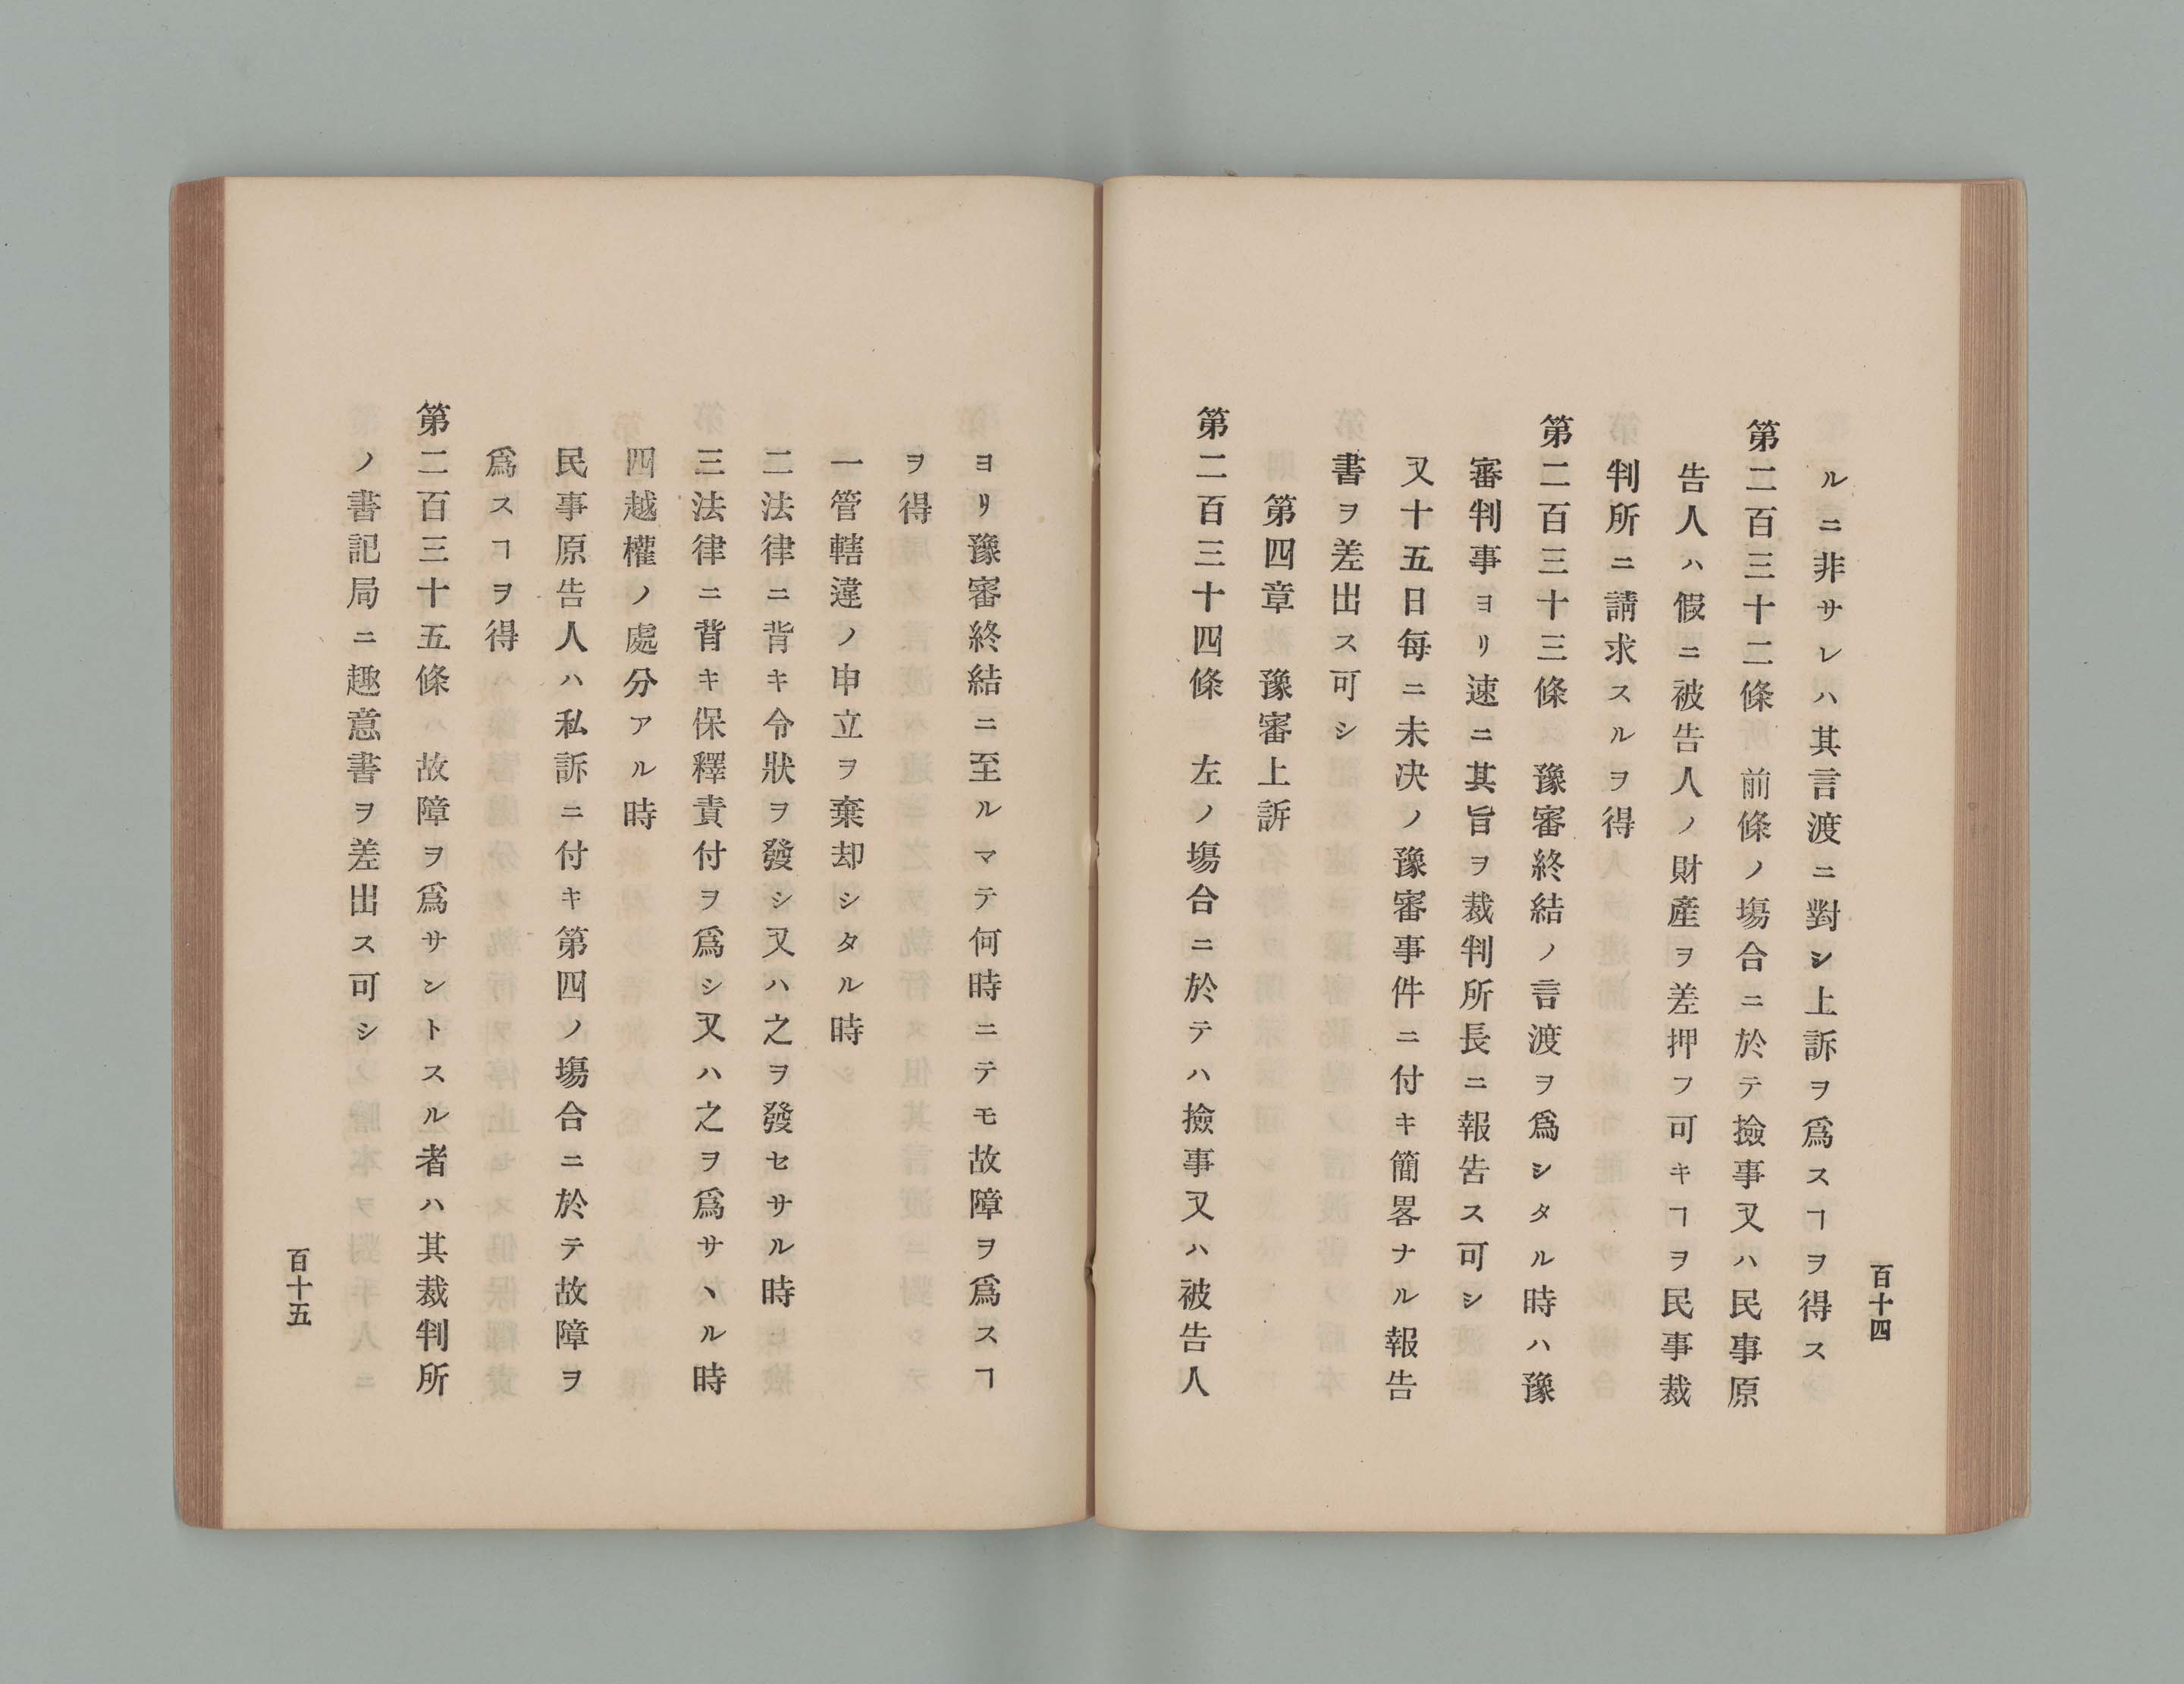 百十四
ルニ非サレハ其言渡ニ對シ上訴ヲ爲スヿヲ得ス
第二百三十二條　前條ノ塲合ニ於テ撿事又ハ民事原
告人ハ假ニ被告人ノ財產ヲ差押フ可キヿヲ民事裁
判所ニ請求スルヲ得
第二百三十三條　豫審終結ノ言渡ヲ爲シタル時ハ豫
審判事ヨリ速ニ其旨ヲ裁判所長ニ報告ス可シ
又十五日每ニ未决ノ豫審事件ニ付キ簡畧ナル報告
書ヲ差出ス可シ
第四章　豫審上訴
第二百三十四條　左ノ塲合ニ於テハ撿事又ハ被告人
ヨリ豫審終結ニ至ルマテ何時ニテモ故障ヲ爲スヿ
ヲ得
一管轄違ノ申立ヲ棄却シタル時
二法律ニ背キ令狀ヲ發シ又ハ之ヲ發セサル時
三法律ニ背キ保釋責付ヲ爲シ又ハ之ヲ爲サヽル時
四越權ノ處分アル時
民事原告人ハ私訴ニ付キ第四ノ塲合ニ於テ故障ヲ
爲スヿヲ得
第二百三十五條　故障ヲ爲サントスル者ハ其裁判所
ノ書記局ニ趣意書ヲ差出ス可シ
百十五